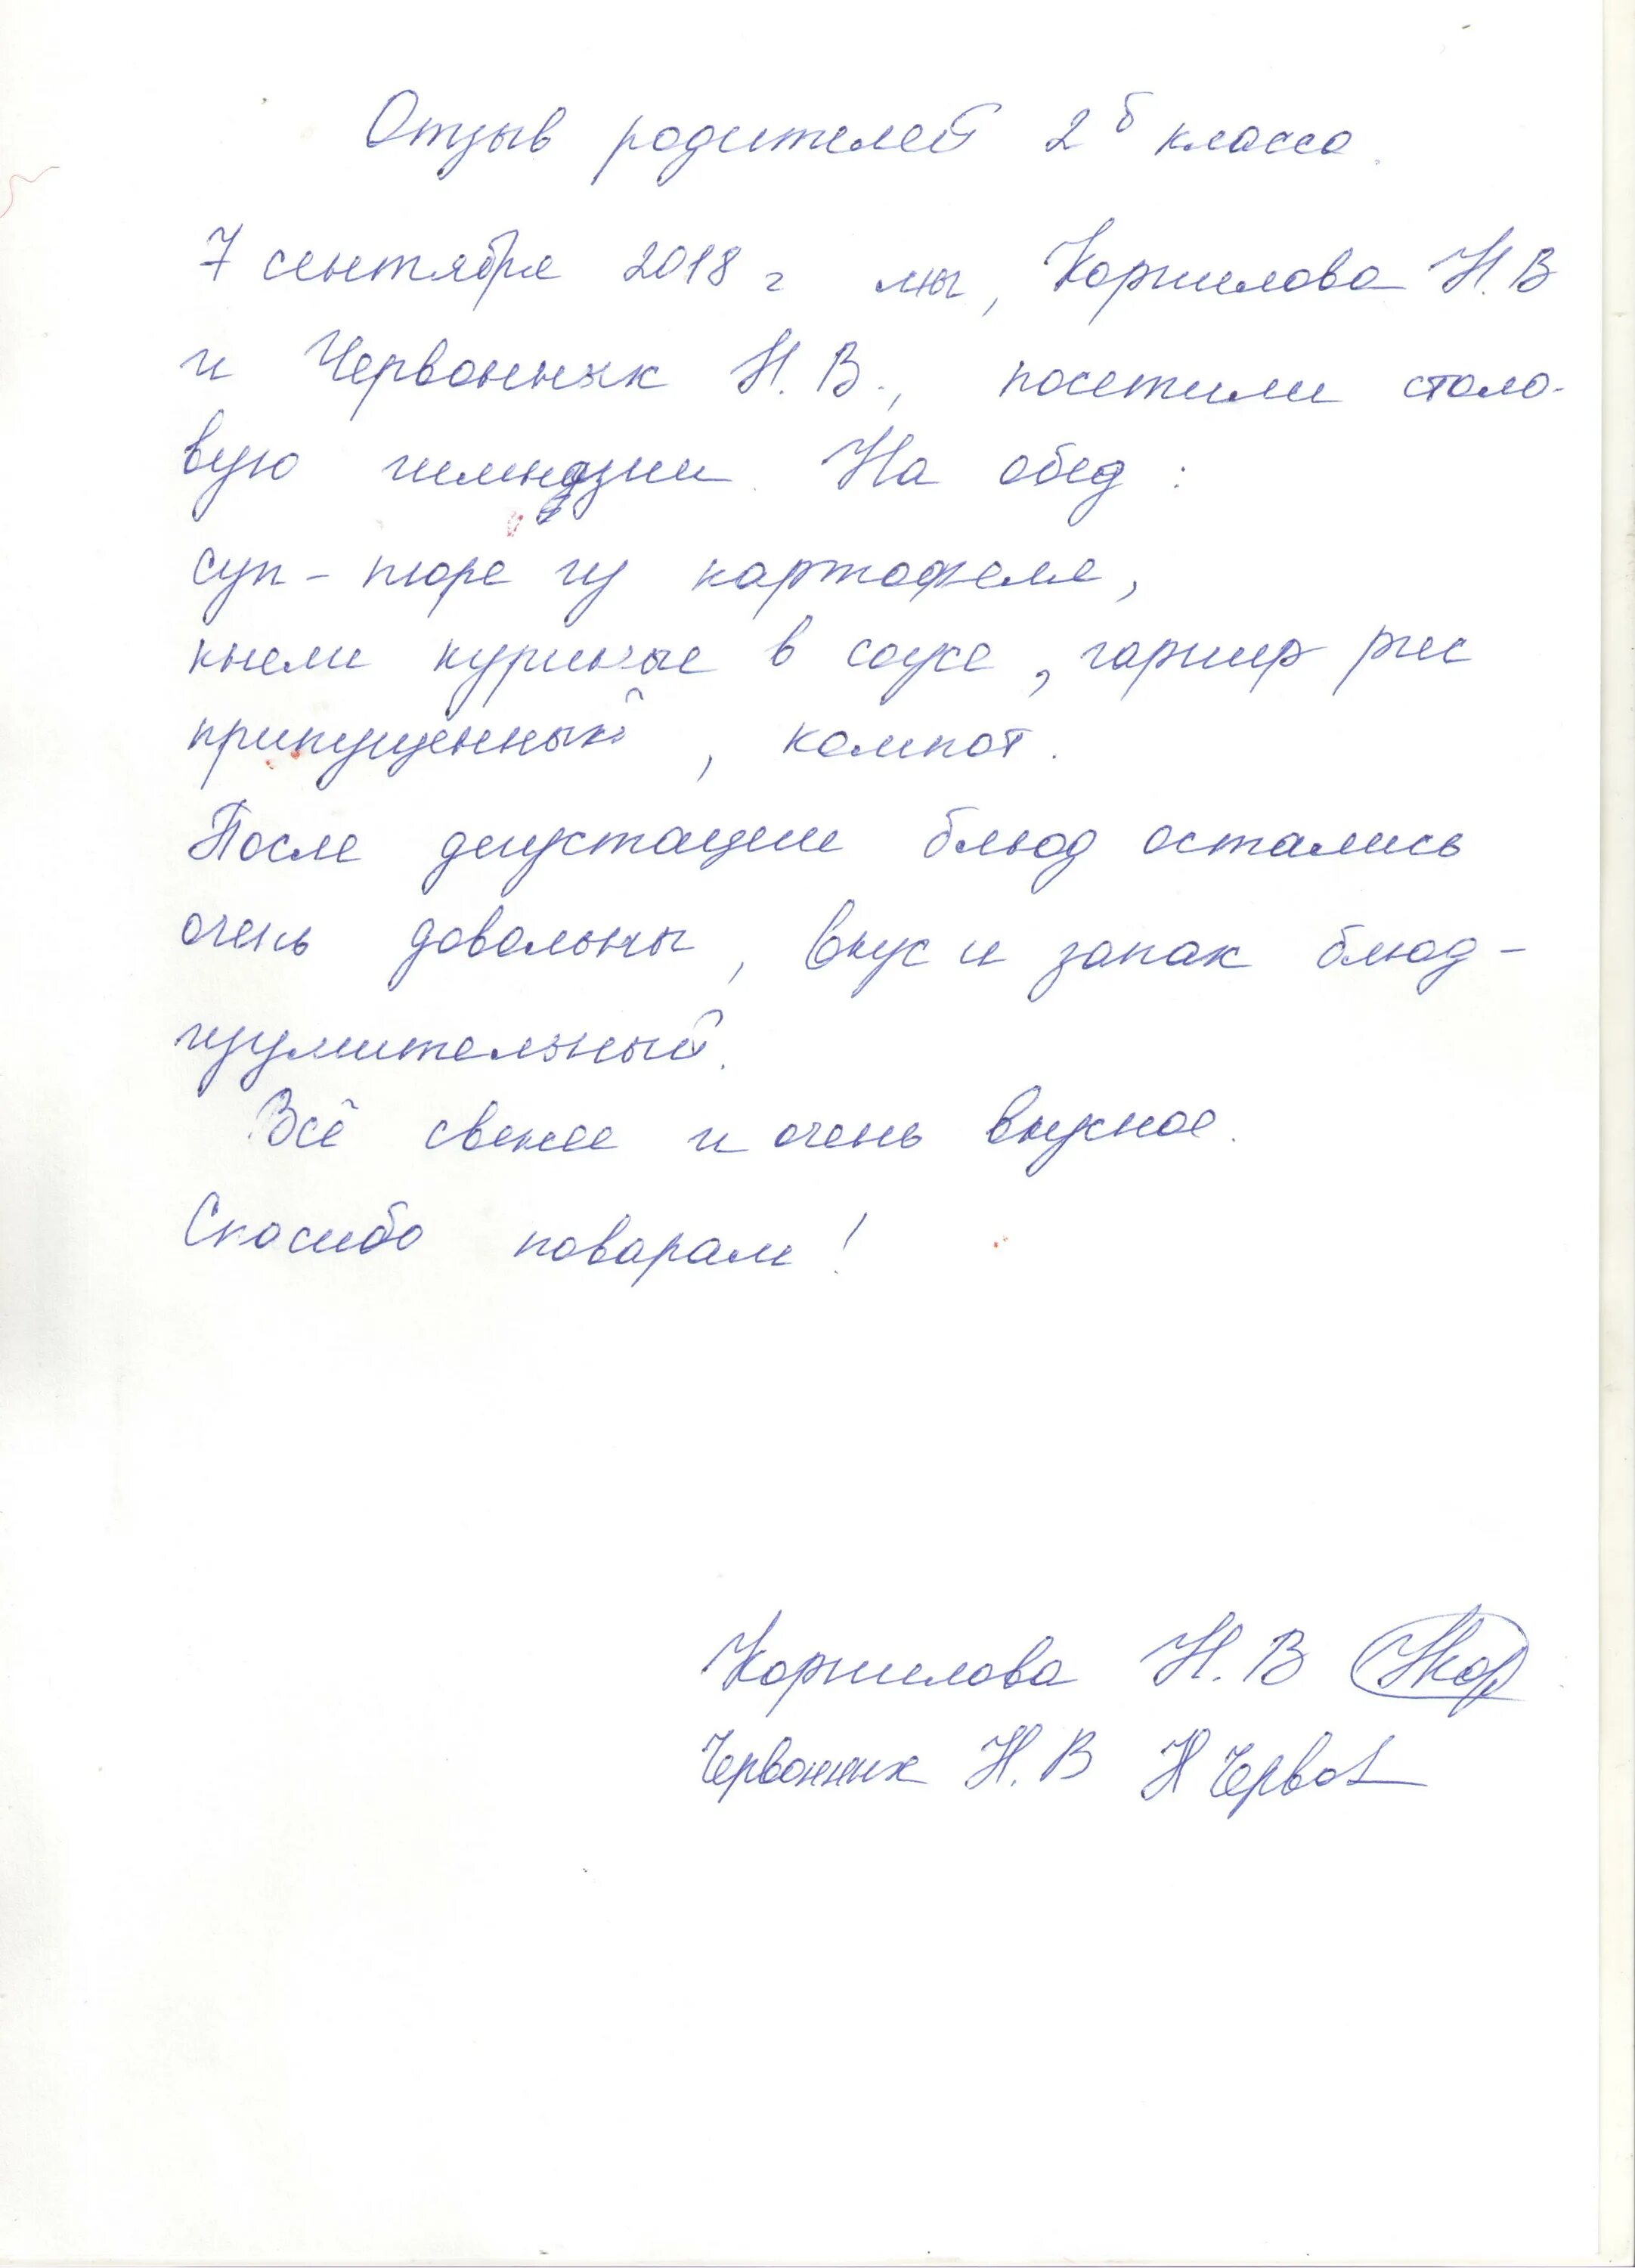 Отзыв родителей 2б класса.
7 сентября 2018 г мы, Корнилова Н.В
и Червонник Н.В., посетили столо-
вую гимназии. На обед:
суп-пюре из картофеля,
кнели куриные в соусе, гарнир рис
припущенный, компот.
После дегустации блюд остались
очень довольны, вкус и запах блюд-
изумительный.
Всё свежее и очень вкусное.
Спасибо поварам!
Корнилова Н.В Нкор
Червонник Н.В НЧерво